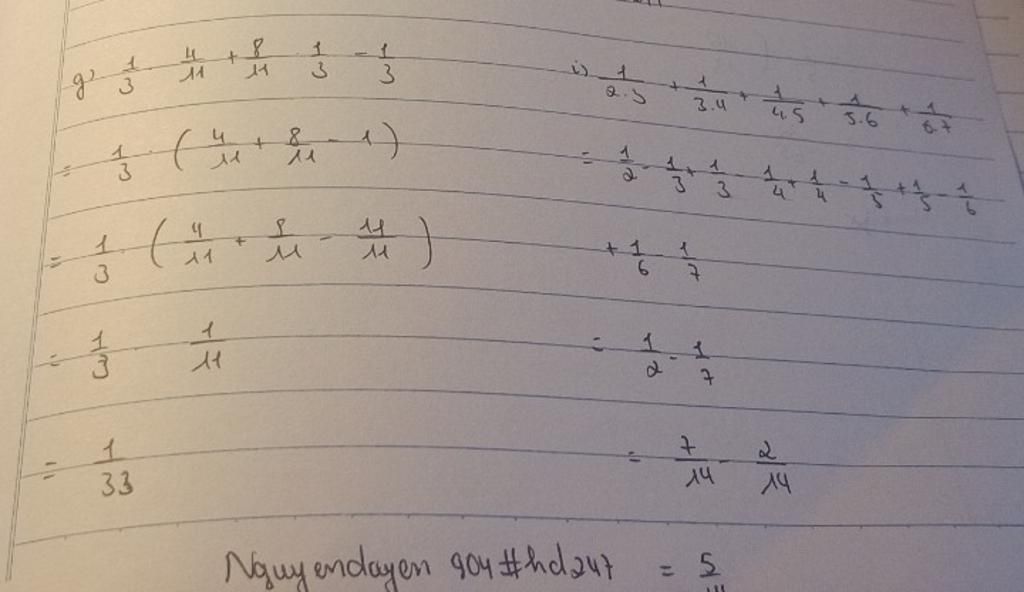 g) 1/3 4/11 + 8/11 1/3 - 1/3
= 1/3 · (4/11 + 8/11 - 1)
= 1/3 (4/11 + 8/11 - 11/11)
= 1/3 1/11
= 1/33
i) 1/2.3 + 1/3.4 + 1/4.5 + 1/5.6 + 1/6.7
= 1/2 - 1/3 + 1/3 - 1/4 + 1/4 - 1/5 + 1/5 - 1/6
+ 1/6 - 1/7
= 1/2 - 1/7
= 7/14 - 2/14
= 5/14
Nguyendayen 904#hd247